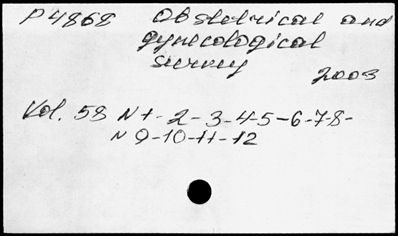 P4868 Obstetrical and
gynecological
survey
2003
Vol. 58 N1-2-3-4-5-6-7-8-
N 9-10-11-12